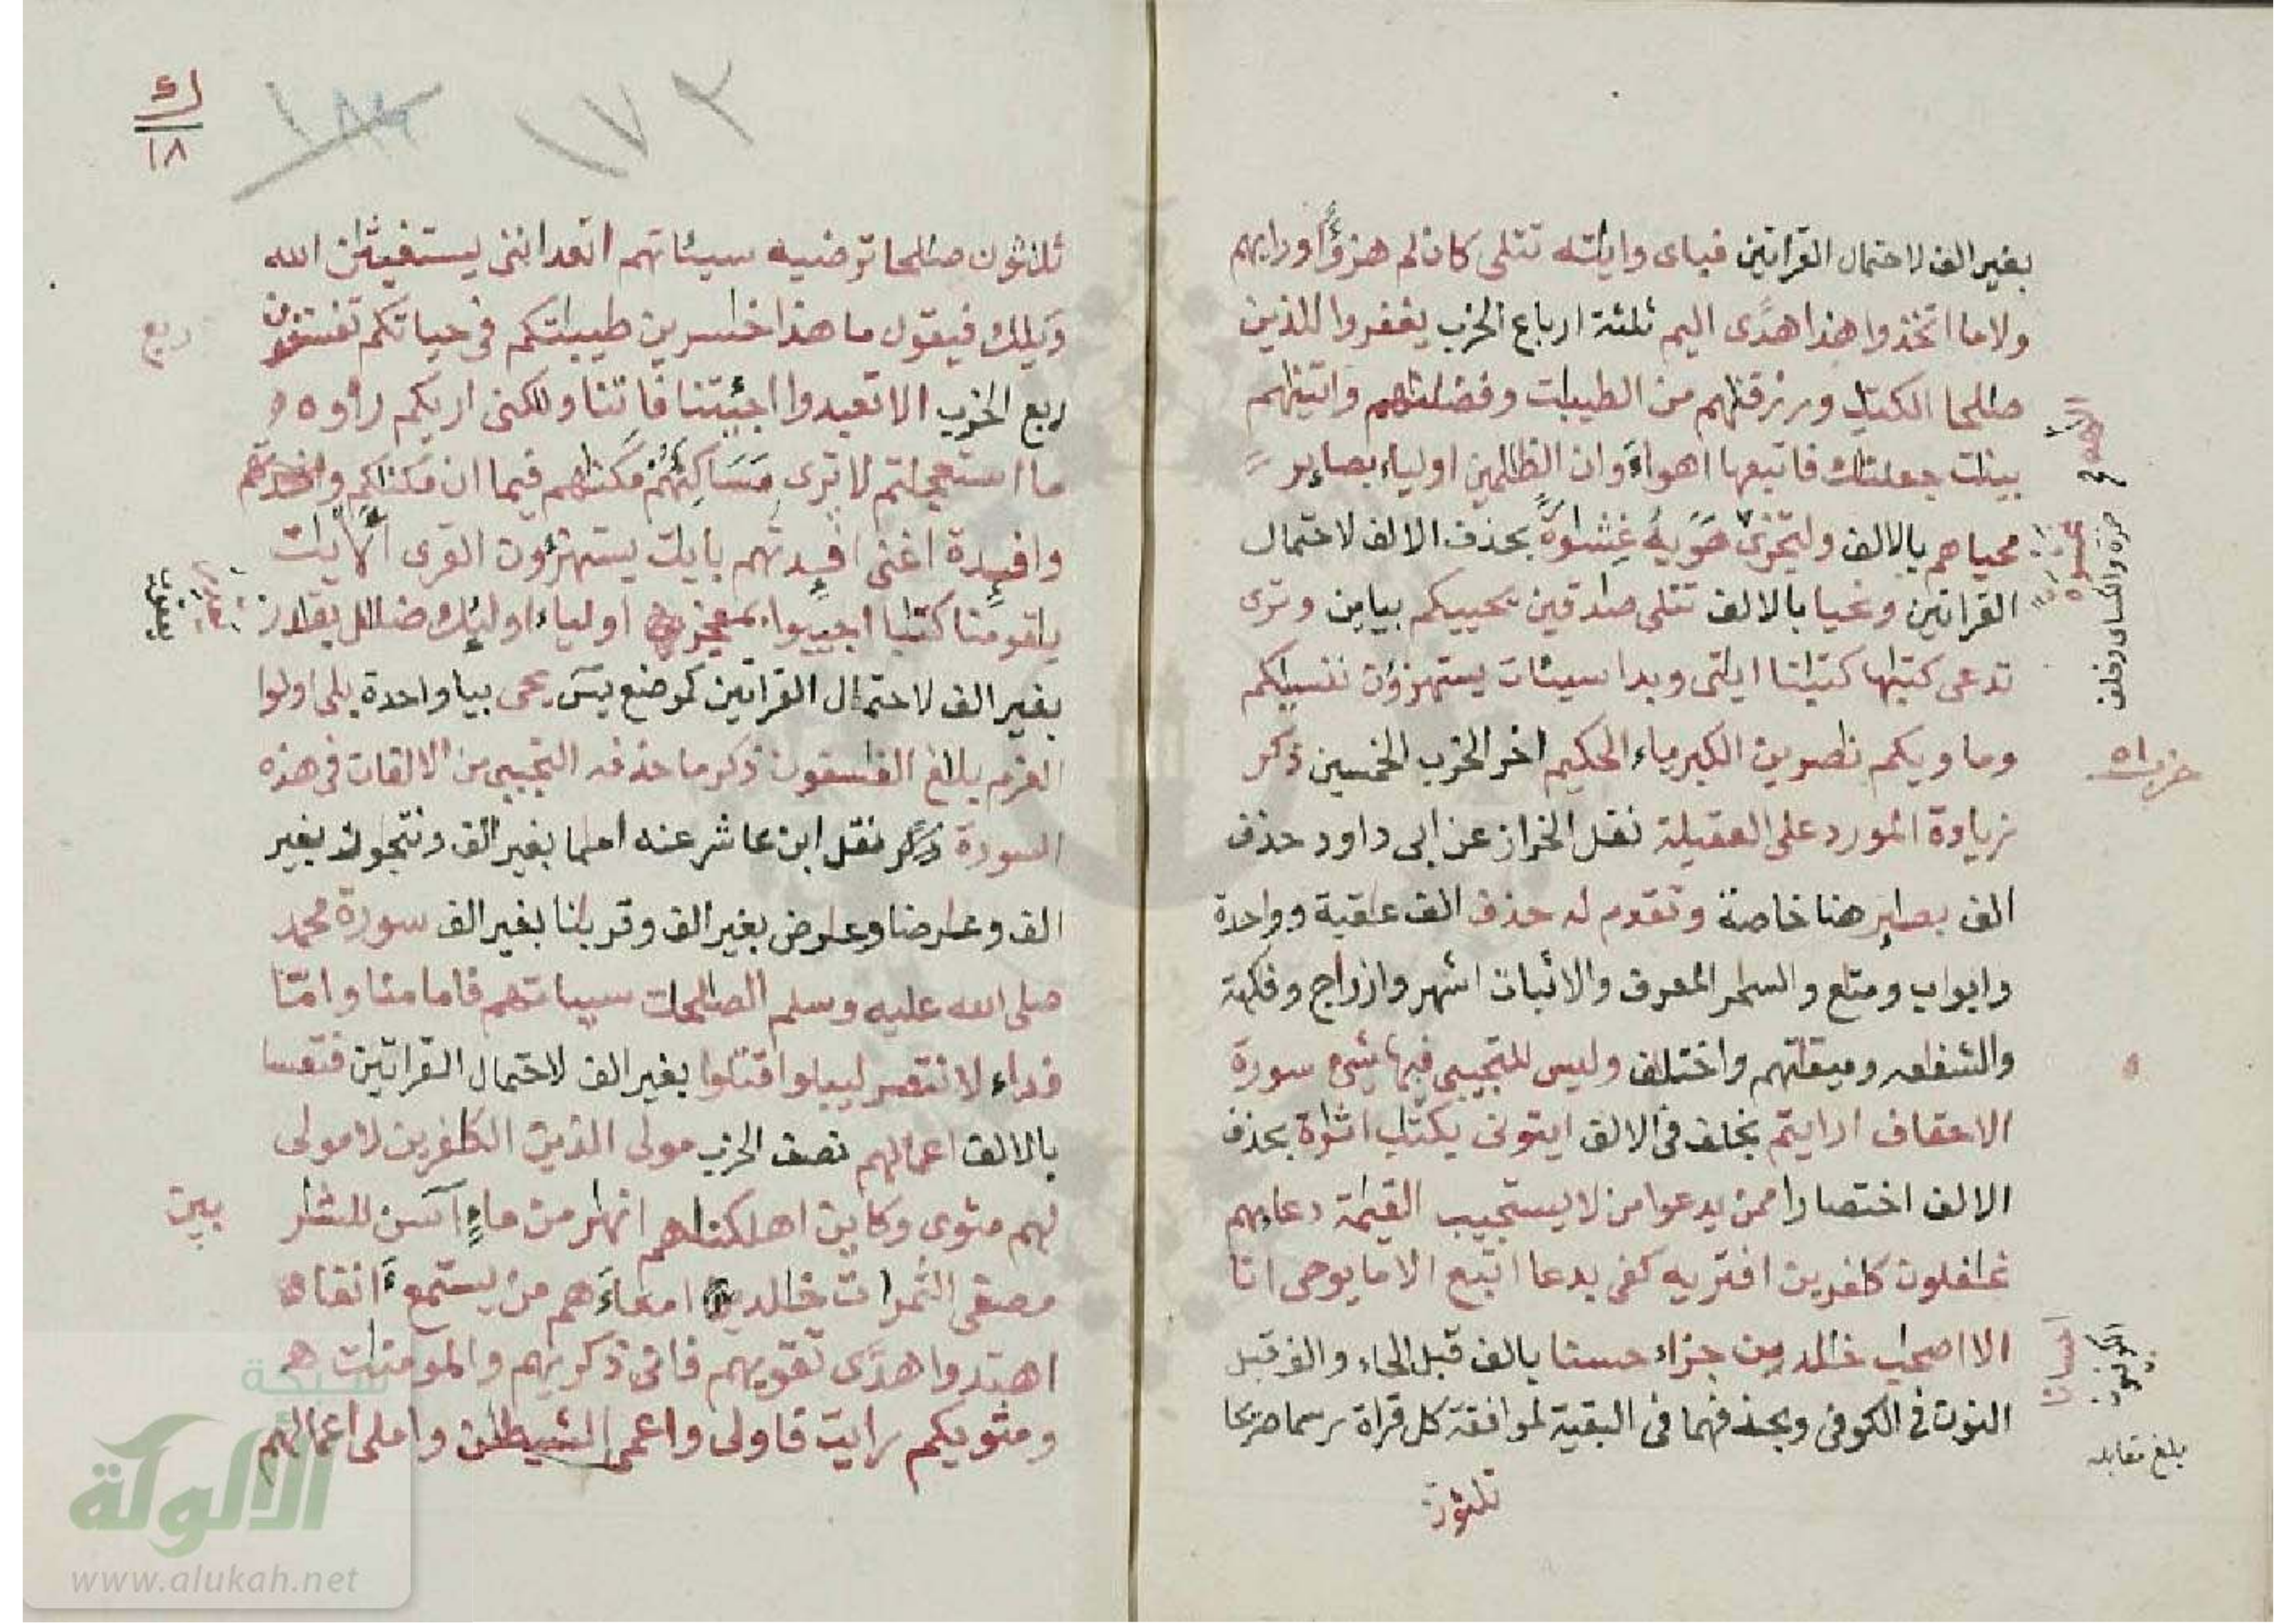 بغير الف لاحتمال القراتين فباى وايته تتلى كان لم هزؤا ورايهم
ولا ما اتخذوا هذا هدى اليم ثلثة ارباع الحزب يغفروا للذين
صلحا الكتب ورزقنهم من الطيبت وفضلنهم واتينهم
بينت جعلنك فاتبعها اهواء وان الظلمين اولياء بصاير
محياهم بالالف ولتجزى هويه غشوة بحذف الالف لاحتمال
القراتين ونحيا بالالف تتلى صدقين يحييكم بيايين وترى
تدعى كتبها كتبنا ايتى وبدا سيئات يستهزؤن ننسيكم
وماويكم نصرين الكبرياء الحكيم اخر الحزب الخمسين ذكر
زيادة المورد على العقيلة نقل الخراز عن ابى داود حذف
الف بصاير هنا خاصة وتقدم له حذف الف عقبة وواحدة
وابواب ومتع والسحر المعرف والاثبات اشهر وازواج وفكهة
والشفعه وميقتهم واختلف وليس للتجيبى فيها شئ سورة
الاحقاف ارايتم بخلف فى الالف ايتونى بكتب اثرة بحذف
الالف اختصارا ممن يدعوا من لا يستجيب القيمة دعايهم
غفلون كفرين افتريه كفى بدعا اتبع الا ما يوحى انا
الا اصحب خلدين جزاء حسنا بالف قبل الحاء والف قبل
النون فى الكوفى وبحذفهما فى البقية لموافقة كل قراة رسما صريحا
ثلثون
حمزة والكسائى وخلف
غشوة
حزب ٥١
احسانا
الكوفيون
بلغ مقابله
١٧٢
ك
١٨
ثلثون صلحا ترضيه سيئاتهم اتعداننى يستغيثن الله
ويلك فيقول ما هذا خسرين طيبتكم فى حياتكم تفسقون
ربع الحزب الا تعبدوا اجئتنا فاتنا ولكنى اريكم راوه
ما استعجلتم لا ترى مسكنهم مكنهم فيما ان مكنكم
وافيدة اغنى افيدتهم بايت يستهزؤن القرى الايت
يقومنا كتبا اجيبوا بمعجز اولياء اوليك ضلل بقدر
بغير الف لاحتمال القراتين كموضع يس يحى بيا واحدة بلى اولوا
العزم بلغ الفسقون ذكر ما حذفه التجيبى من الالفات فى هذه
السورة ذكر نقل ابن عاشر عنه اعلما بغير الف ونتجوز بغير
الف وعرضا وعرض بغير الف وقربنا بغير الف سورة محمد
صلى الله عليه وسلم الصلحت سيياتهم فاما منا واما
فداء لانتصر ليبلوا قتلوا بغير الف لاحتمال القراتين فتعسا
بالالف اعملهم نصف الحزب مولى الذين الكفرين لا مولى
لهم مثوى وكاين اهلكنهم انهر من ماء آسن للشربين
مصفى الثمرات خلد امعاءهم من يستمع انفا
اهتدوا هدى تقويهم فانى ذكريهم والمومنت
ومثويكم رايت فاولى واعمى الشيطن واملى اعملهم
ربع
شبكة
الألوكة
www.alukah.net